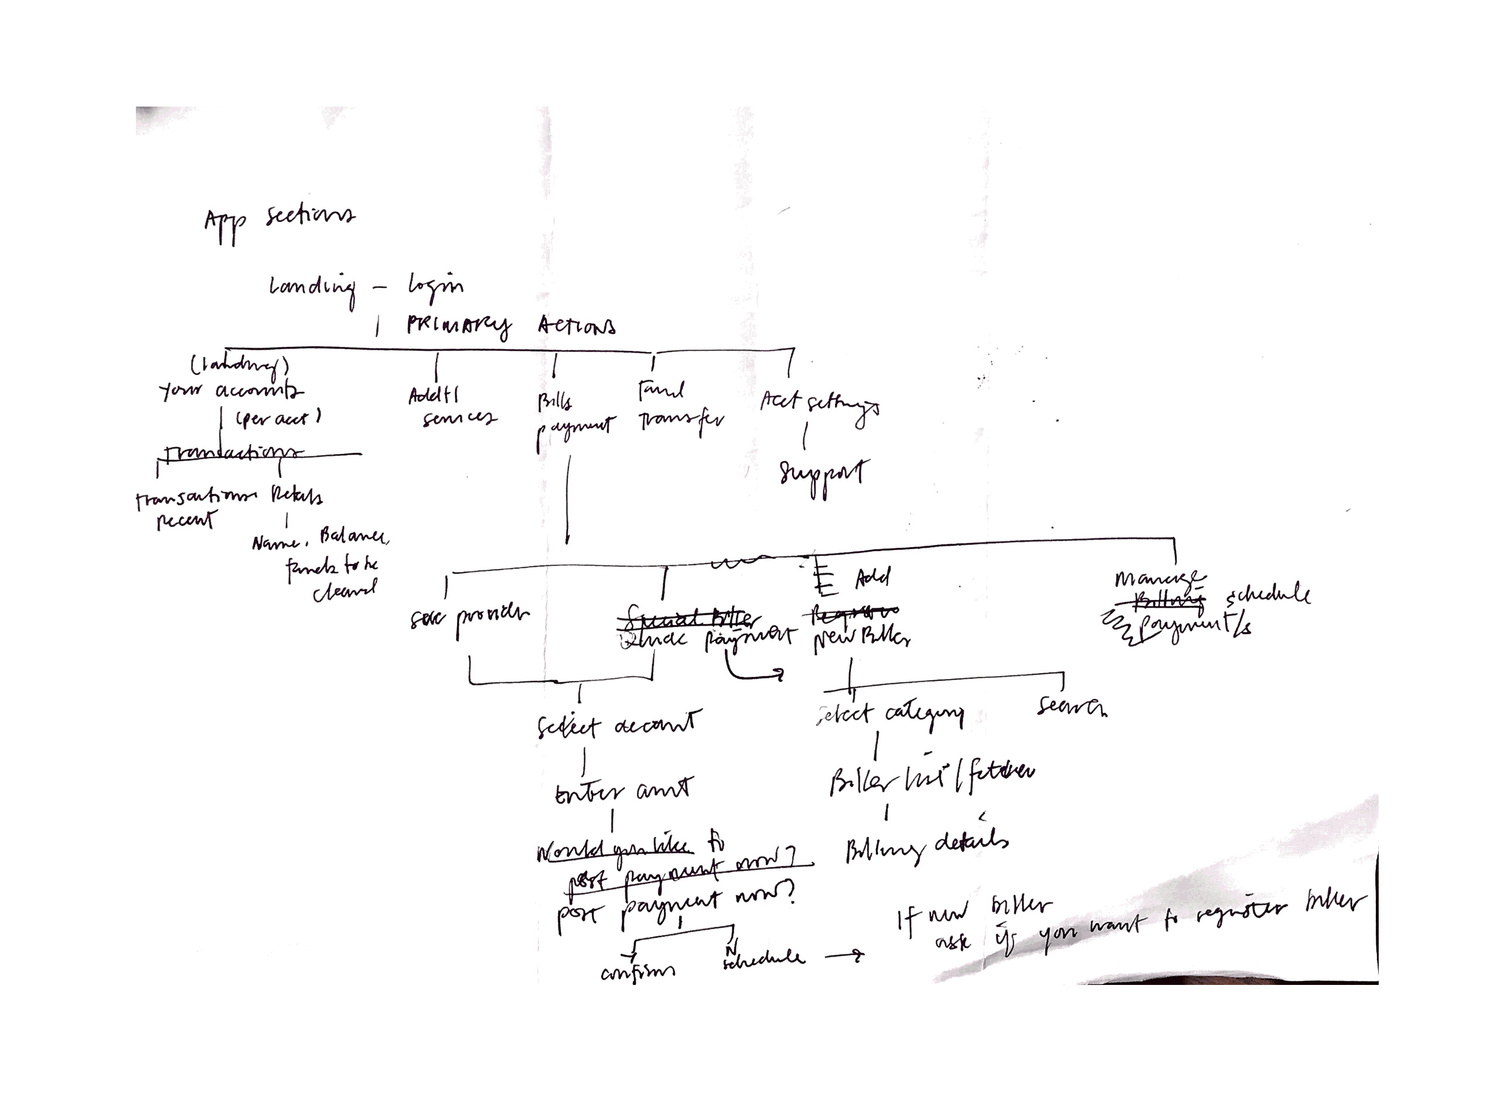 App sections
Landing - Login
PRIMARY ACTIONS
(landing)
your accounts
(per acct)
Transactions
Transactions
recent
Details
Name, Balance,
funds to be
cleared
Addtl
services
Bills
payment
Fund
Transfer
Acct settings
Support
provider
Special Biller
payment
Add
Register
New Biller
Manage
Billing schedule
payment/s
Select account
Enter amt
Would you like to
post payment now?
post payment now?
Y
confirm
N
schedule
Select category
Search
Biller list/
Billing details
If new biller
ask if you want to register biller